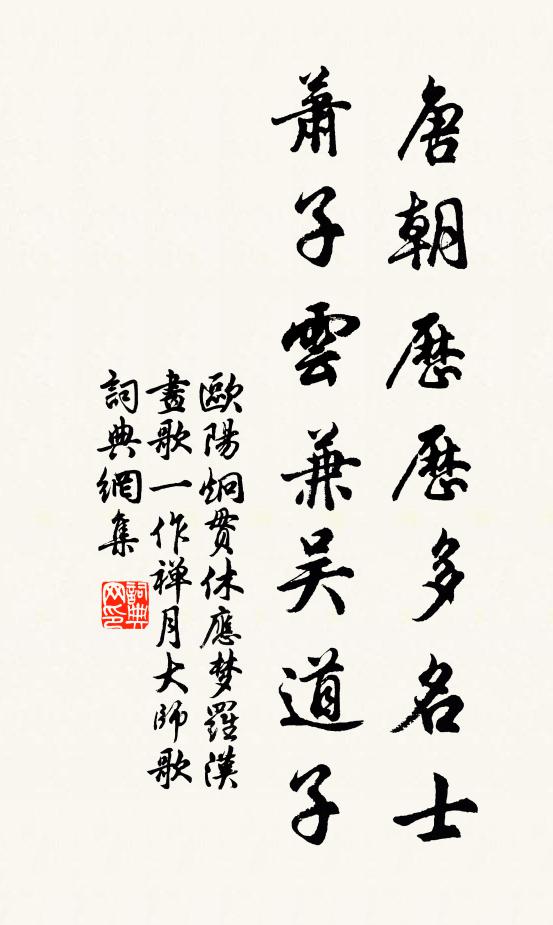 唐朝歷歷多名士
蕭子雲兼吴道子
歐陽炯贯休應梦羅漢
畫歌一作禅月大師歌
詞典網集
詞典
网印